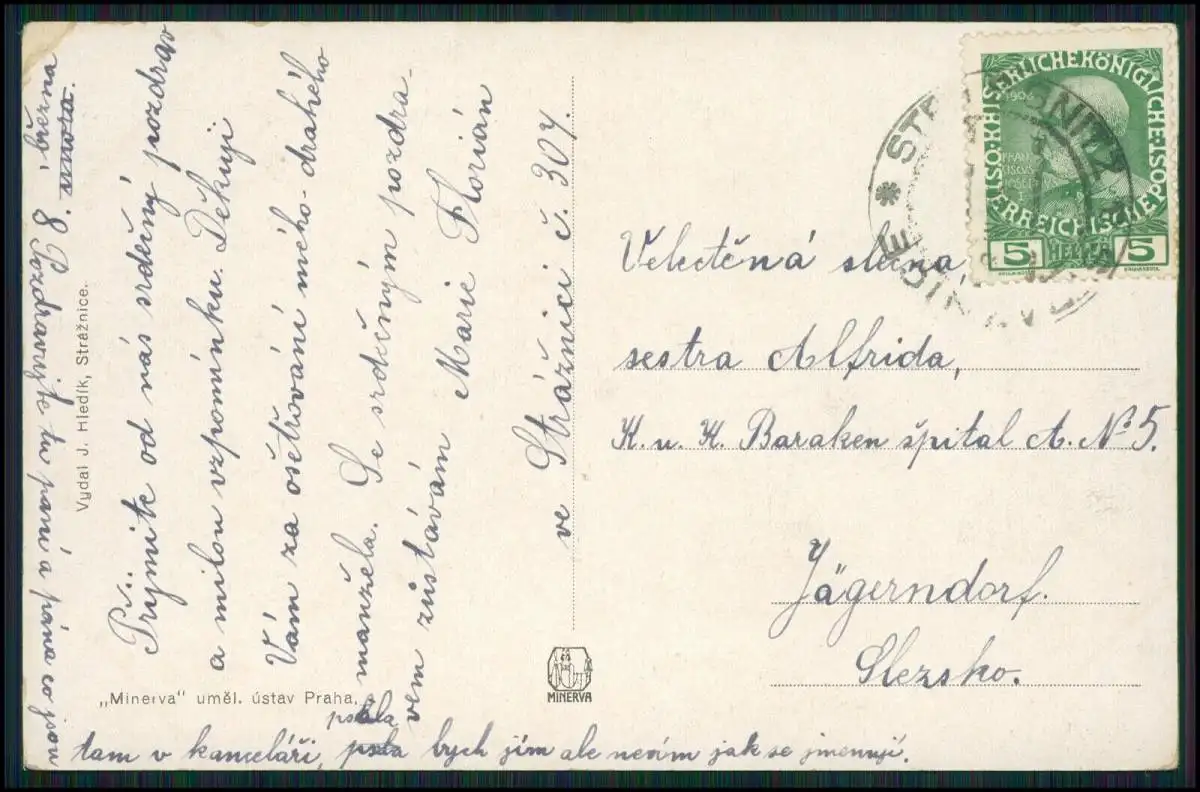 Přijmite od nás srdečný pozdrav
a milou vzpomínku. Děkuji
Vám za ošetřování mého drahého
manžela. Se srdečným pozdra-
vem zůstávám Marie Florián
ve Strážnici č. 304.
8. března
Pozdravujte tu paní a pána co jsou
tam v kanceláři, psala bych jim ale nevím jak se jmenují.
Vydal J. Hledík, Strážnice.
„Minerva" uměl. ústav Praha.
MINERVA
Velectěná slečna,
sestra Alfrida,
K. u. K. Baraken špital A. No 5.
Jägerndorf.
Slezsko.
KAISERLICHE KÖNIGLICHE
ÖSTERREICHISCHE POST
1908
FRAN
CISCUS
JOSEF I
5 HELLER 5
STRÁŽNICE